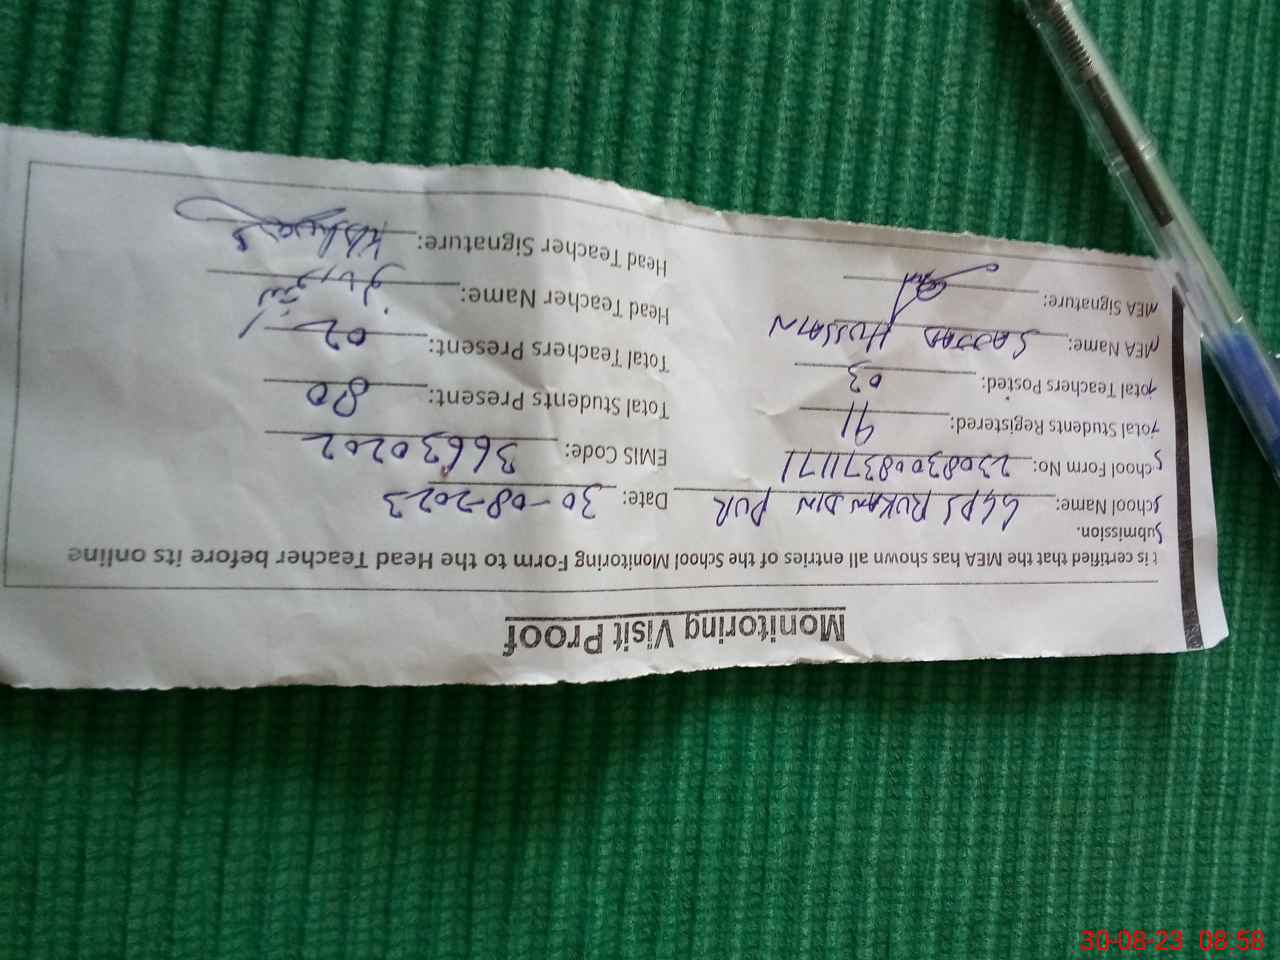 Monitoring Visit Proof
t is certified that the MEA has shown all entries of the School Monitoring Form to the Head Teacher before its online
submission.
School Name: GGPS RUKAN DIN PUR Date: 30-08-2023
School Form No: 2308300837 11171 EMIS Code: 36630202
Total Students Registered: 91 Total Students Present: 80
Total Teachers Posted: 03 Total Teachers Present: 02
MEA Name: SAJJAD HUSSAIN Head Teacher Name:
MEA Signature: Head Teacher Signature:
30-08-23 08:58